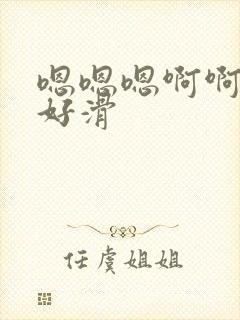 嗯嗯嗯啊啊
好滑
任虞姐姐